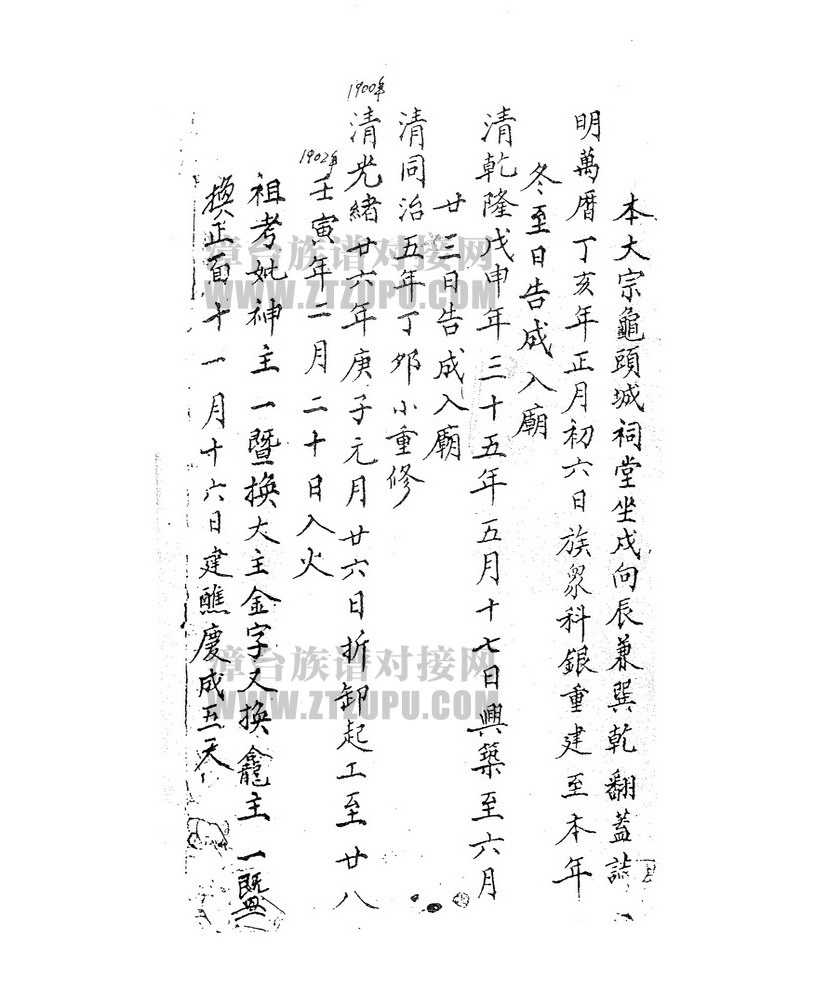 本大宗龜頭城祠堂坐戌向辰兼巽乾翻蓋誌
明萬曆丁亥年正月初六日族眾科銀重建至本年
冬至日告成入廟
清乾隆戊申年三十五年五月十七日興築至六月
廿三日告成入廟
清同治五年丁夘小重修
1900年
清光緒廿六年庚子元月廿六日拆卸起工至廿八
1902年
壬寅年二月二十日入火
祖考妣神主一暨換大主金字又換龕主一暨
換正面十一月十六日建醮慶成五天
漳台族谱对接网
WWW.ZTZUPU.COM
漳台族谱对接网
WWW.ZTZUPU.COM